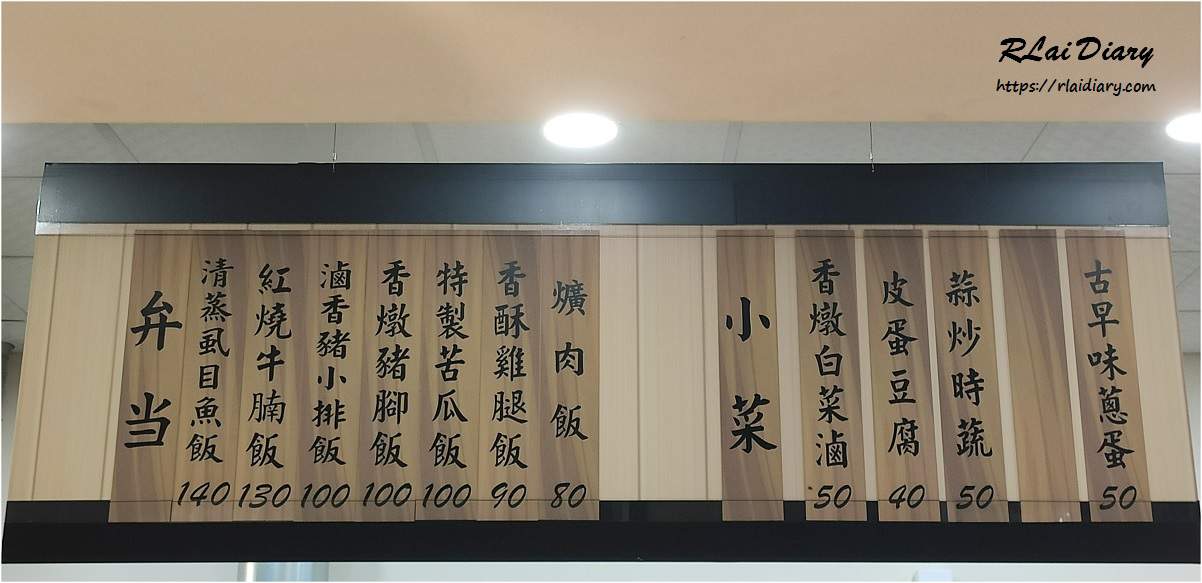 RLai Diary
https://rlaidiary.com
弁当
清蒸虱目魚飯 140
紅燒牛腩飯 130
滷香豬小排飯 100
香燉豬腳飯 100
特製苦瓜飯 100
香酥雞腿飯 90
爌肉飯 80
小菜
香燉白菜滷 50
皮蛋豆腐 40
蒜炒時蔬 50
古早味蔥蛋 50